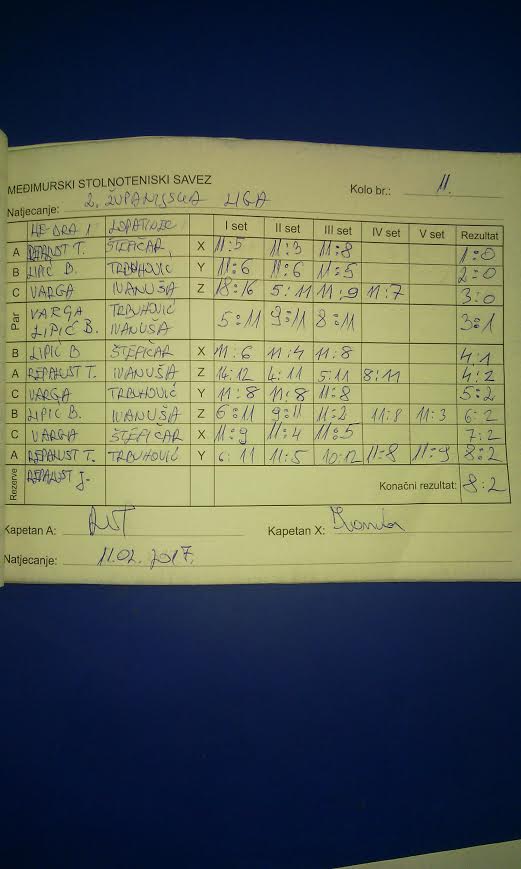 MEĐIMURSKI STOLNOTENISKI SAVEZ
Kolo br.: 11.
Natjecanje: 2. ŽUPANIJSKA LIGA
LOPATINEC I set II set III set IV set V set Rezultat
A REPALUST T. ŠTEFIČAR X 11:5 11:3 11:8 1:0
B LIPIĆ B. TRBUHOVIĆ Y 11:6 11:6 11:5 2:0
C VARGA IVANUŠA Z 18:16 5:11 11:9 11:7 3:0
Par VARGA TRBUHOVIĆ
LIPIĆ B. IVANUŠA 5:11 9:11 8:11 3:1
B LIPIĆ B ŠTEFIČAR X 11:6 11:4 11:8 4:1
A REPALUST T. IVANUŠA Z 14:12 4:11 5:11 8:11 4:2
C VARGA TRBUHOVIĆ Y 11:8 11:8 11:8 5:2
B LIPIĆ B. IVANUŠA Z 6:11 9:11 11:2 11:8 11:3 6:2
C VARGA ŠTEFIČAR X 11:9 11:4 11:5 7:2
A REPALUST T. TRBUHOVIĆ Y 6:11 11:5 10:12 11:8 11:9 8:2
Rezerve REPALUST J. Konačni rezultat: 8:2
Kapetan A: Kapetan X:
Natjecanje: 11.02.2017.